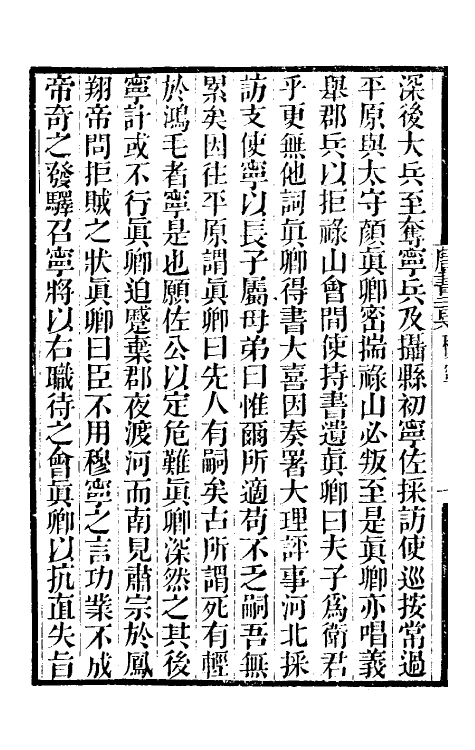 深後大兵至奪寧兵及攝縣初寧佐採訪使巡按常過
平原與太守顏眞卿密揣祿山必叛至是眞卿亦唱義
舉郡兵以拒祿山會間使持書遺眞卿曰夫子爲衛君
乎更無他詞眞卿得書大喜因奏署大理評事河北採
訪支使寧以長子屬母弟曰惟爾所適苟不乏嗣吾無
累矣因往平原謂眞卿曰先人有嗣矣古所謂死有輕
於鴻毛者寧是也願佐公以定危難眞卿深然之其後
寧計或不行眞卿迫蹙棄郡夜渡河而南見肅宗於鳳
翔帝問拒賊之狀眞卿曰臣不用穆寧之言功業不成
帝奇之發驛召寧將以右職待之會眞卿以抗直失旨